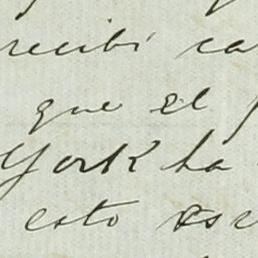 recibí ca
que el
York ha
esto es